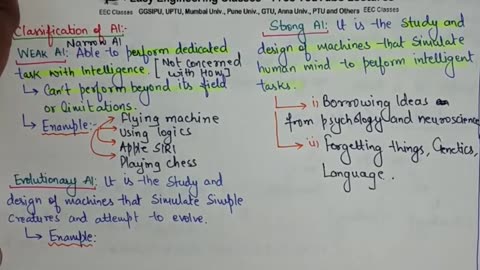 EEC Classes GGSIPU, UPTU, Mumbai Univ., Pune Univ., GTU, Anna Univ., PTU and Others EEC Classes
Classification of AI:
Narrow AI
WEAK AI: Able to perform dedicated
task with Intelligence. [Not concerned
with How]
↳ Can't perform beyond its field
or limitations.
↳ Example:- Flying machine
Using logics
Apple SIRI
Playing chess
Evolutionary AI: It is the study and
design of machines that simulate simple
creatures and attempt to evolve.
↳ Example:
Strong AI: It is the study and
design of machines that simulate
human mind to perform intelligent
tasks.
i) Borrowing Ideas
from psychology and neuroscience
ii) Forgetting things, Genetics,
Language.